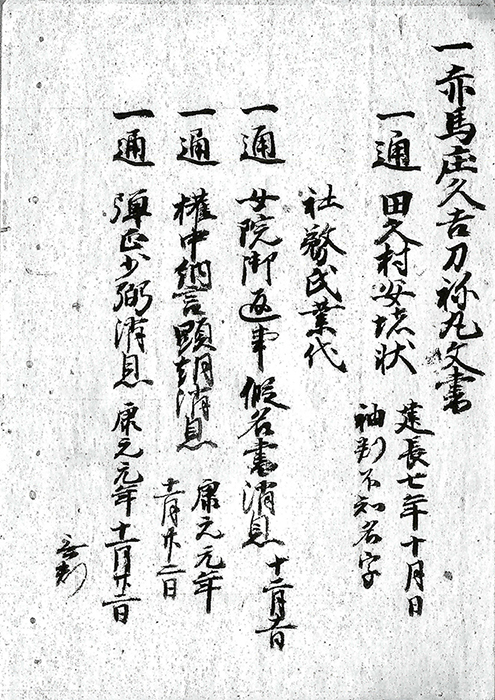 一赤馬庄久吉刀祢丸文書
一通 田久村安堵状 建長七年十月日
袖判不知名字
社務氏業代
一通 女院御返事仮名書消息 十二月一日
一通 権中納言顕朝消息 康元元年
十一月廿二日
一通 弾正少弼消息 康元元年十一月廿二日
在判